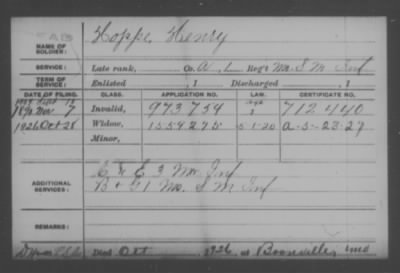 NAME OF SOLDIER: Hoppe, Henry
SERVICE: Late rank, Co. A, 1 Reg't Mo. S M Inf
TERM OF SERVICE: Enlisted , 1 Discharged , 1
DATE OF FILING. CLASS. APPLICATION NO. LAW. CERTIFICATE NO.
1890 Nov 7 Invalid, 973.754 712440
1926 Oct 28 Widow, 1554275 5-1-20 A-5-23-27
Minor,
ADDITIONAL SERVICES: C & E 3 Mo. Inf
B & G 1 Mo. S M Inf
REMARKS:
Died Oct 1926 at Boonville, Mo